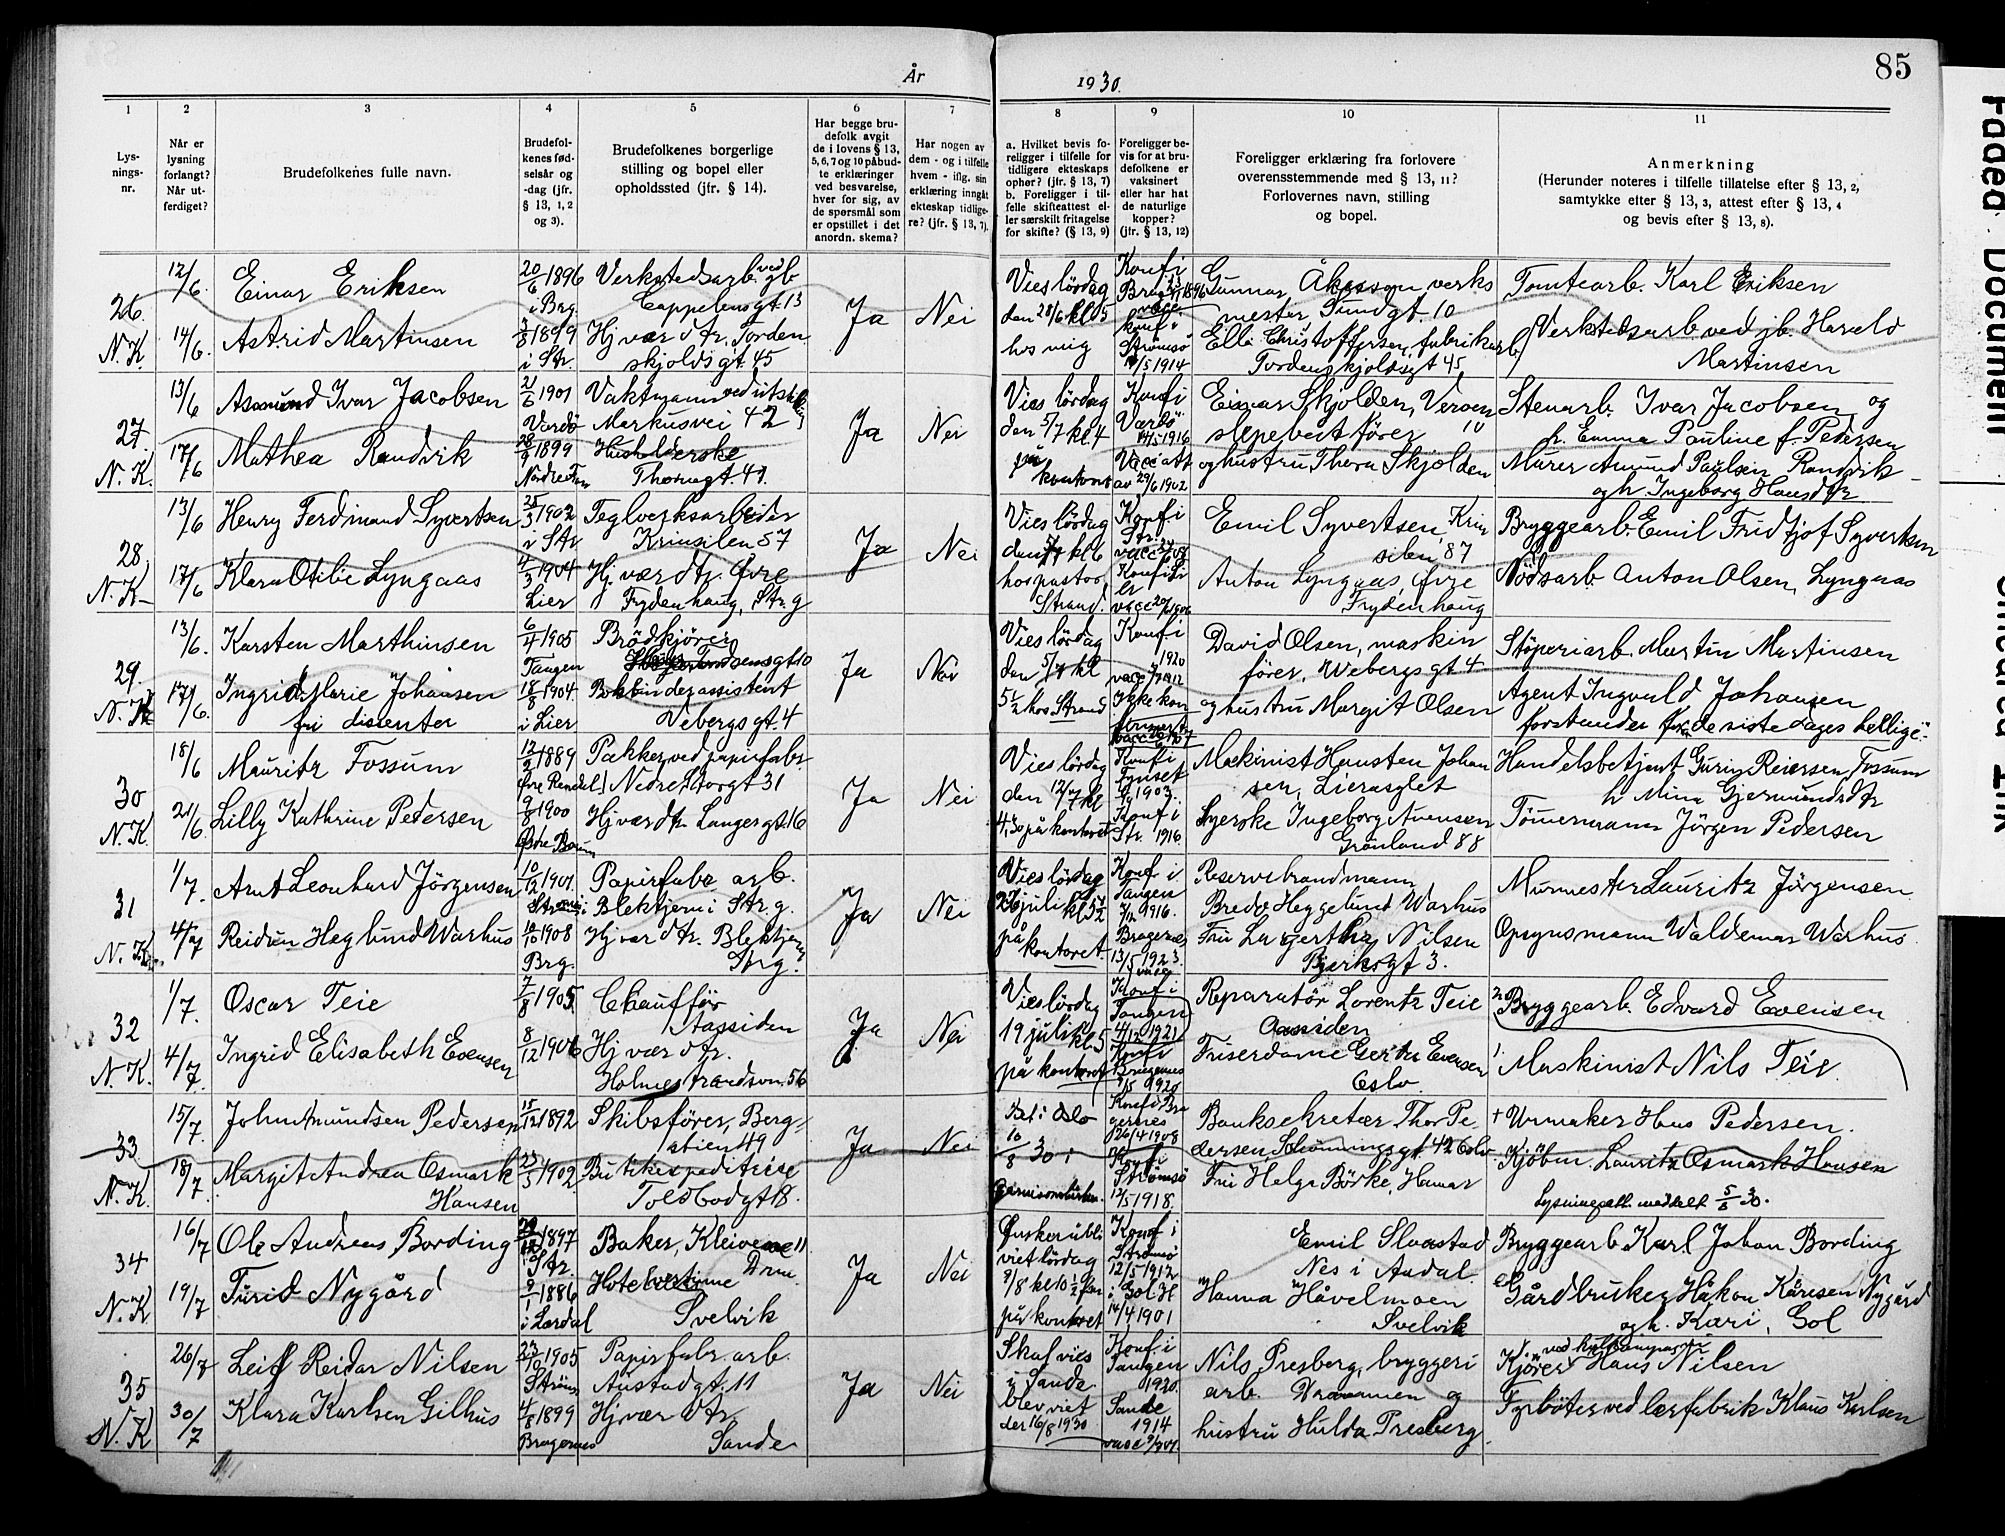 År 1930.
85
1
2
3
4
5
6
7
8
9
10
11
Lys-
nings-
nr.
Når er
lysning
forlangt?
Når ut-
ferdiget?
Brudefolkenes fulle navn.
Brudefol-
kenes fød-
selsår og
-dag (jfr.
§ 13, 1, 2
og 3).
Brudefolkenes borgerlige
stilling og bopel eller
opholdssted (jfr. § 14).
Har begge bru-
defolk avgit
de i lovens § 13,
5, 6, 7 og 10 påbud-
te erklæringer
ved besvarelse,
hver for sig, av
de spørsmål som
er opstillet i det
anordn. skema?
Har nogen av
dem - og i tilfelle
hvem - iflg. sin
erklæring inngåt
ekteskap tidlige-
re? (jfr. § 13, 7).
a. Hvilket bevis fo-
religger i tilfelle for
tidligere ekteskaps
opher? (jfr. § 13, 7)
b. Foreligger i til-
felle skifteattest el-
ler særskilt fritagelse
for skifte? (§ 13, 9)
Foreligger be-
vis for at bru-
defolkene er
vaksinert
eller har hat
de naturlige
kopper?
(jfr. § 13, 12)
Foreligger erklæring fra forlovere
overensstemmende med § 13, 11?
Forlovernes navn, stilling
og bopel.
Anmerkning
(Herunder noteres i tilfelle tillatelse efter § 13, 2,
samtykke efter § 13, 3, attest efter § 13, 4
og bevis efter § 13, 8).
26.
N.K
12/6.
14/6.
Einar Eriksen
Astrid Martinsen
20/6 1896
i Brg.
1899
i Str.
Verkstedsarb. ved jb
Cappelensgt. 13
Hj vær dtr. Torden
skjoldsgt. 45
Ja
Nei
Vies lördag
den 28/6 kl 5
hos mig
Konf i
Brag
konf i
Strömsö
/5 1914
Gunnar Åkesson verks
mester, Tundgt. 10
Elli Christoffersen, fabrikarb
Tordenskjoldsgt 45
Tomtearb. Karl Eriksen
Verkstedsarb ved jb. Harald
Martinsen
27.
N.K.
13/6
17/6
Asmund Ivar Jacobsen
Mathea Randvik
2/6 1901
Vardö
28/9 1899
Vaktmann ved
Markusvei 42
Husholderske
Thornegt. 41.
Ja
Nei
Vies lördag
den 5/7 kl. 4
på
kontoret
Konf i
1916
Vacc att
av 29/6 1902
Einar Skjolden,
og hustru Thora Skjolden
Stenarb. Ivar Jacobsen og
h. Emma Pauline f. Pedersen
Murer Amund Paulsen Randvik
og h. Ingeborg Hansdtr
28
N.K
13/6
17/6
Henry Ferdinand Syvertsen
Klara Otilie Lyngaas
25/3 1902
i Str
1904
Lier
Teglverksarbeider
Krinsilen 57
Hj vær dtr. Øvre
Frydenhaug, Str g
Ja
Nei
Vies lördag
den 5/7 kl 6
hos pastor
Strand.
Konf i
Str.
Konf i Li
er
vacc 20/6 1906
Emil Syvertsen, Krin
silen 87
Anton Lyngaas, Øvre
Frydenhaug
Bryggearb. Emil Fridtjof Syvertsen
Nödsarb Anton Olsen, Lyngaas
29.
N.K
13/6.
17/6.
Karsten Marthinsen
Ingrid Marie Johansen
fri dissenter
6/4 1905
Tangen
18/8 1904.
i Lier
Brödkjörer
Bokbinderassistent
Vebergsgt. 4
Ja
Nei
Vies lördag
den 5/7 kl
5½ hos Strand
Konf i
1920
Ikke kon
David Olsen, maskin
förer, Webergs gt 4
og hustru Margit Olsen
Stöperiarb. Martin Martinsen
Agent Ingvald Johansen
forstander for "de siste dages hellige".
30
N.K.
18/6
21/6.
Mauritz Fossum
Lilly Kathrine Pedersen
12/2 1889
Øvre Rendal
9/8 1900
Østre Bærum
Pakker ved papirfabr.
Nedre torgt 31
Hj vær dtr. Langes gt. 16
Ja
Nei
Vies lördag
den 12/7 kl
4,30 på kontoret
Konf i
Tynset
1903.
Konf i
Str. 1916.
Maskinist Hansten Johan
sen, Lierasylet
Syerske Ingeborg Svensen
Grönland 88
Handelsbetjent Gurin Reiersen Fossum
h Mina Gjermundsdtr
Tömmermann Jörgen Pedersen
31
1/7.
4/7
Arnt Leonhard Jörgensen
Reidun Heglund Warhus
10/12 1901.
1908
Brg.
Papirfabr arb.
Blektjern i Str. g.
Hj vær dtr. Blektjern
Ja
Nei
Vies lördag
26 juli kl 5½
på
kontoret.
Konf i
Tangen
1916.
Bragernes
13/5 1923.
vacc
Reservebrandmann
Bredo Heggelund Warhus
Fru Lagertha Nilsen
Bjerksgt 3.
Murmester Lauritz Jörgensen
Opsynsmann Waldemar Warhus.
32
N.K.
1/7.
4/7.
Oscar Teie
Ingrid Elisabeth Evensen
7/8 1905
8/12 1906
Chauffför
Aassiden
Hj vær dtr.
Holmestrandsvn. 56
Ja
Nei
Vies lördag
19 juli kl. 5
på kontoret
Konf i
Tangen
4/12 1921
Konf i
Bragernes
1920
Reparatör Lorentz Teie
Aassiden
Friserdame Gerta Evensen
Oslo
2 Bryggearb. Edvard Evensen
1. Maskinist Nils Teie
33.
N.K.
15/7.
18/7.
John Amundsen Pedersen
Margit Andrea Osmark
Hansen
15/12 1892
23/5 1902
Skibsförer, Berg-
stien 49
Butikexpeditrise
Toldbodgt 18.
Ja
Nei
Vet i Oslo
10/8 30 i
Garnisonskirken.
Konf i Bra
gernes
26/4 1908
Konf i
Strömsö
12/5 1918.
Banksekretær Thor Pe-
dersen Schönningsgt. 42 Oslo
Fru Helga Börke, Hamar
+ Urmaker Hans Pedersen.
Kjöbm. Lauritz Osmark Hansen
Lysningsatt. meddelt 5/8 30.
34
N.K
16/7
19/7
Ole Andreas Bording
Turid Nygård
1897
Str.
9/1 1886
i Lærdal
Baker, Kleivene 11
Drm.
Hotelvertinne
Svelvik
Ja
Nei
Ønsker å bli
viet lördag
9/8 kl 10½ fm
på kontoret
Konf i
Strömsö
12/5 1912
i Gol H
14/4 1901
Emil Slaastad
Nes i Aadal.
Hanna Håvelmoen
Svelvik
Bryggearb Karl Johan Bording
Gårdbruker Håkon Kåresen Nygård
og h. Kari, Gol
35
N.K
26/7
30/7
Leif Reidar Nilsen
Klara Karlsen Gilhus
23/10 1905
Ströms
4/8 1899
Bragernes
Papirfabr. arb.
Austadgt. 11
Hj vær dtr
Sande
Ja
Nei
Skal vies
i Sande
blev viet
der 16/8 1930
Konf i
Tangen
1920.
Sande
1914
Nils Presberg, bryggeri
arb. Drammen og
hustru Hulda Presberg.
Kjörer Hans Nilsen
Fyrböter ved lærfabrik Klaus Karlsen
Faded Document